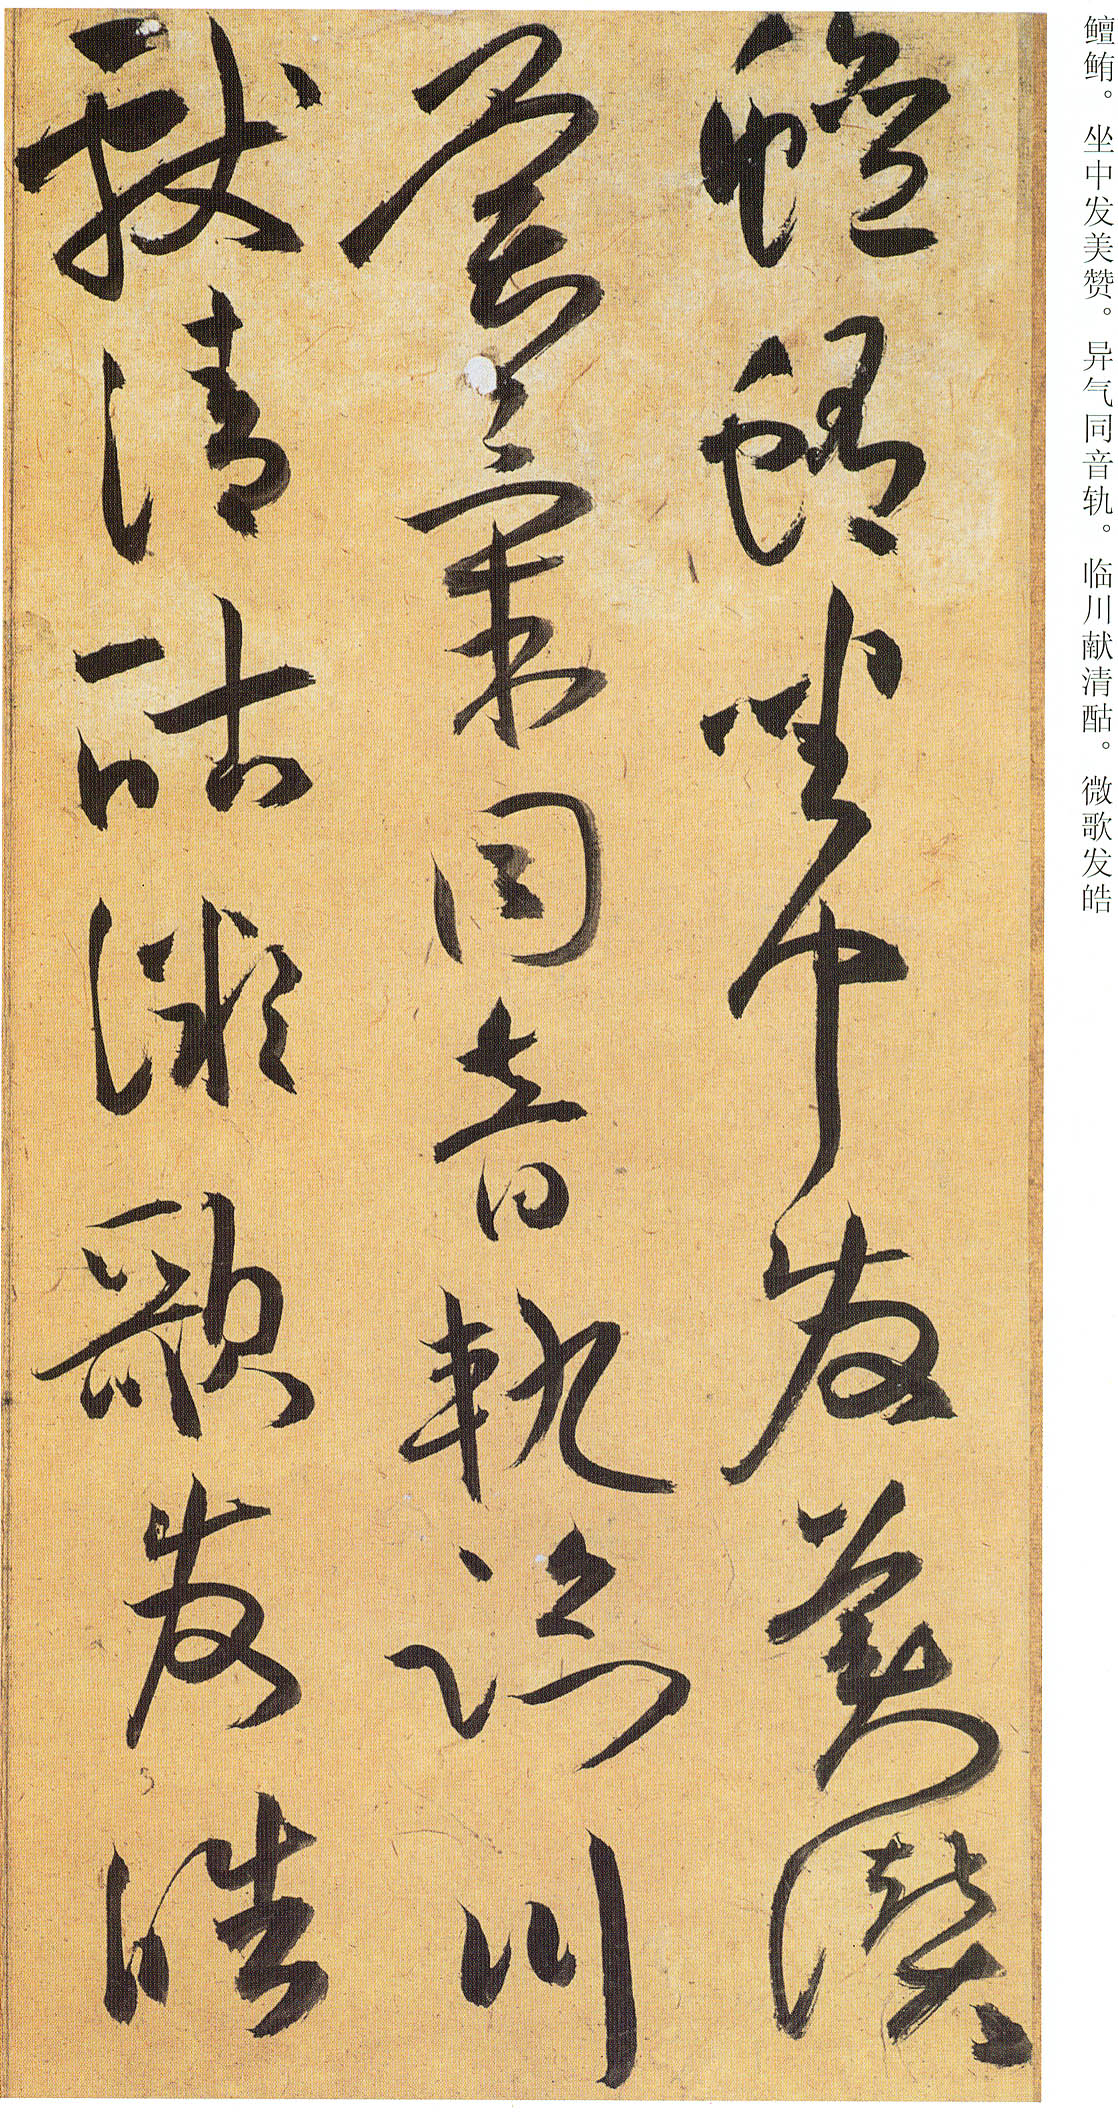 鳣鲔。坐中发美赞。异气同音轨。临川献清酤。微歌发皓
鳣鲔坐中发美讃
异气同音軌临川
献清酤微歌发皓